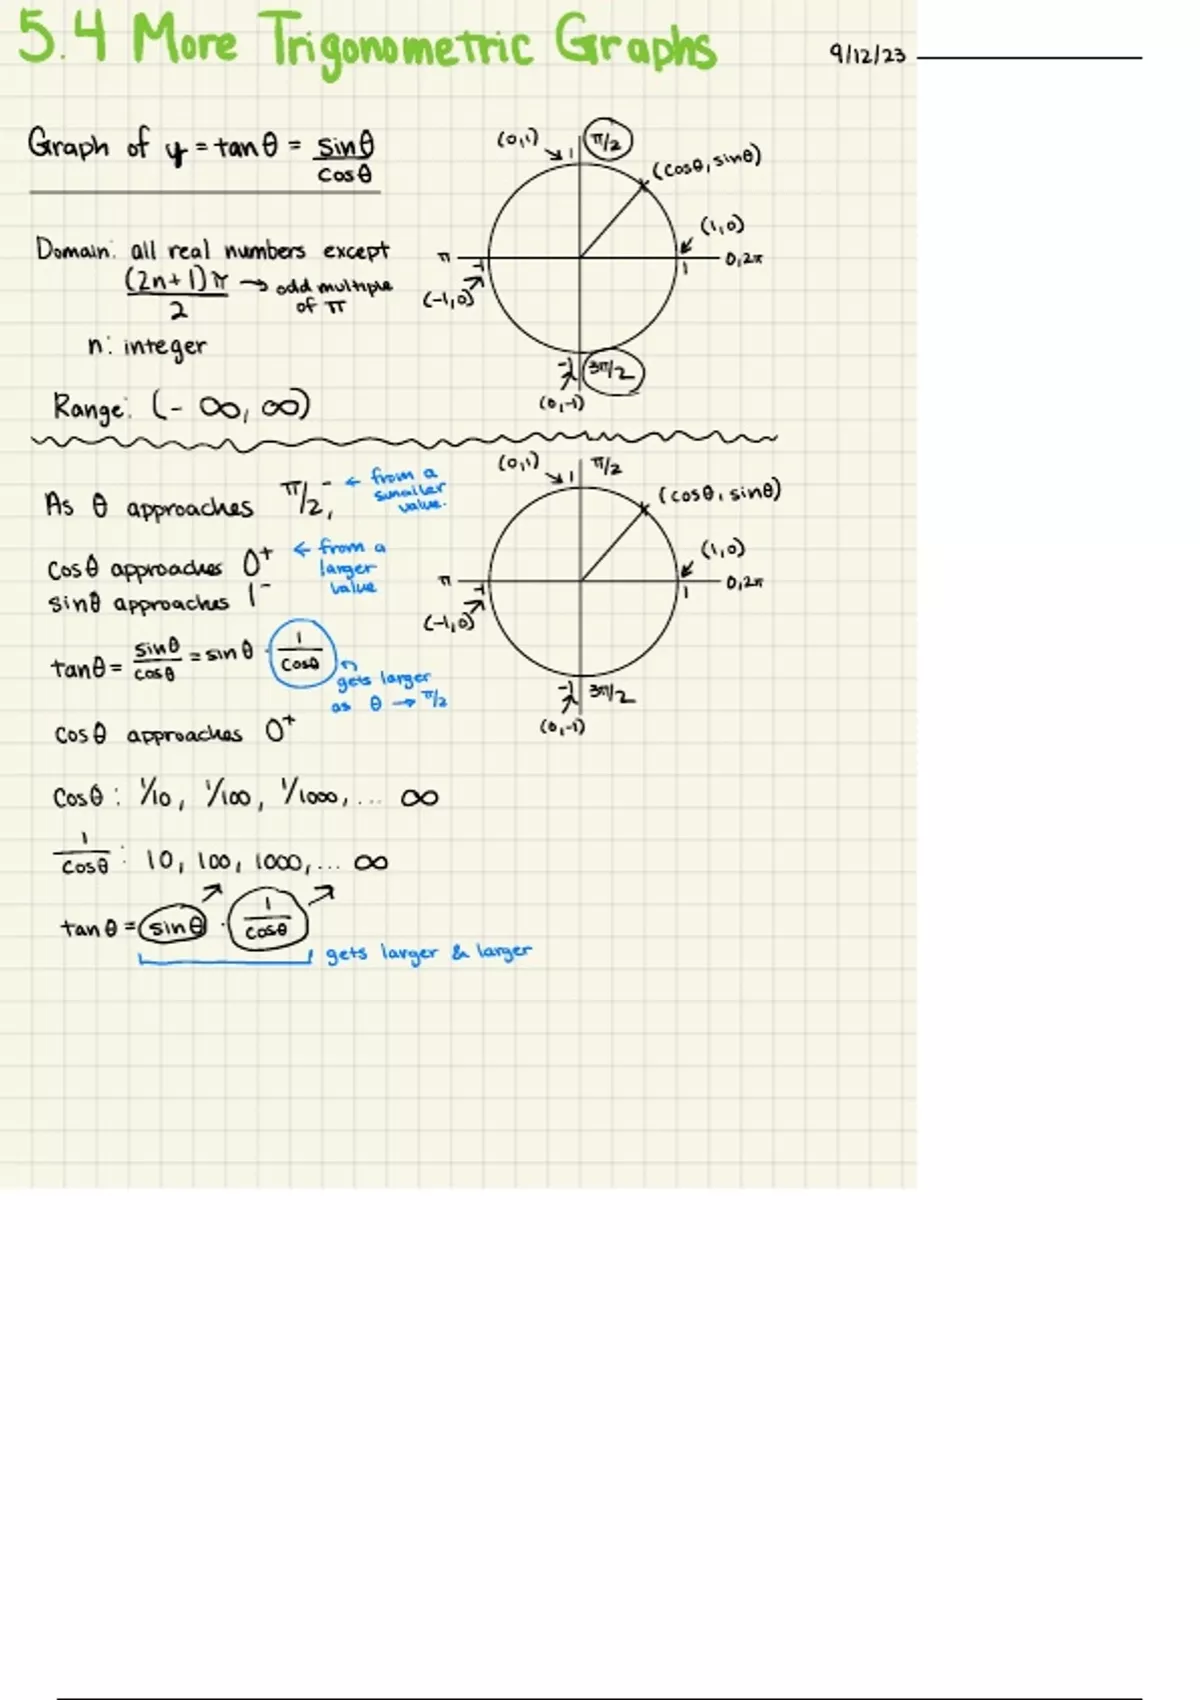 5.4 More Trigonometric Graphs
9/12/23
Graph of y = tanθ = sinθ/cosθ
Domain: all real numbers except
(2n+1)π/2 → odd multiple
of π
n: integer
Range: (-∞, ∞)
(0,1)
1
π/2
(cosθ, sinθ)
(1,0)
π
-1
1
0, 2π
(-1,0)
-1
3π/2
(0,-1)
As θ approaches π/2⁻, ← from a
smaller
value.
cosθ approaches 0⁺ ← from a
larger
value
sinθ approaches 1⁻
tanθ = sinθ/cosθ = sinθ · 1/cosθ
gets larger
as θ → π/2
cosθ approaches 0⁺
cosθ: 1/10, 1/100, 1/1000, ... ∞
1/cosθ: 10, 100, 1000, ... ∞
tanθ = sinθ · 1/cosθ
gets larger & larger
(0,1)
1
π/2
(cosθ, sinθ)
(1,0)
π
-1
1
0, 2π
(-1,0)
-1
3π/2
(0,-1)